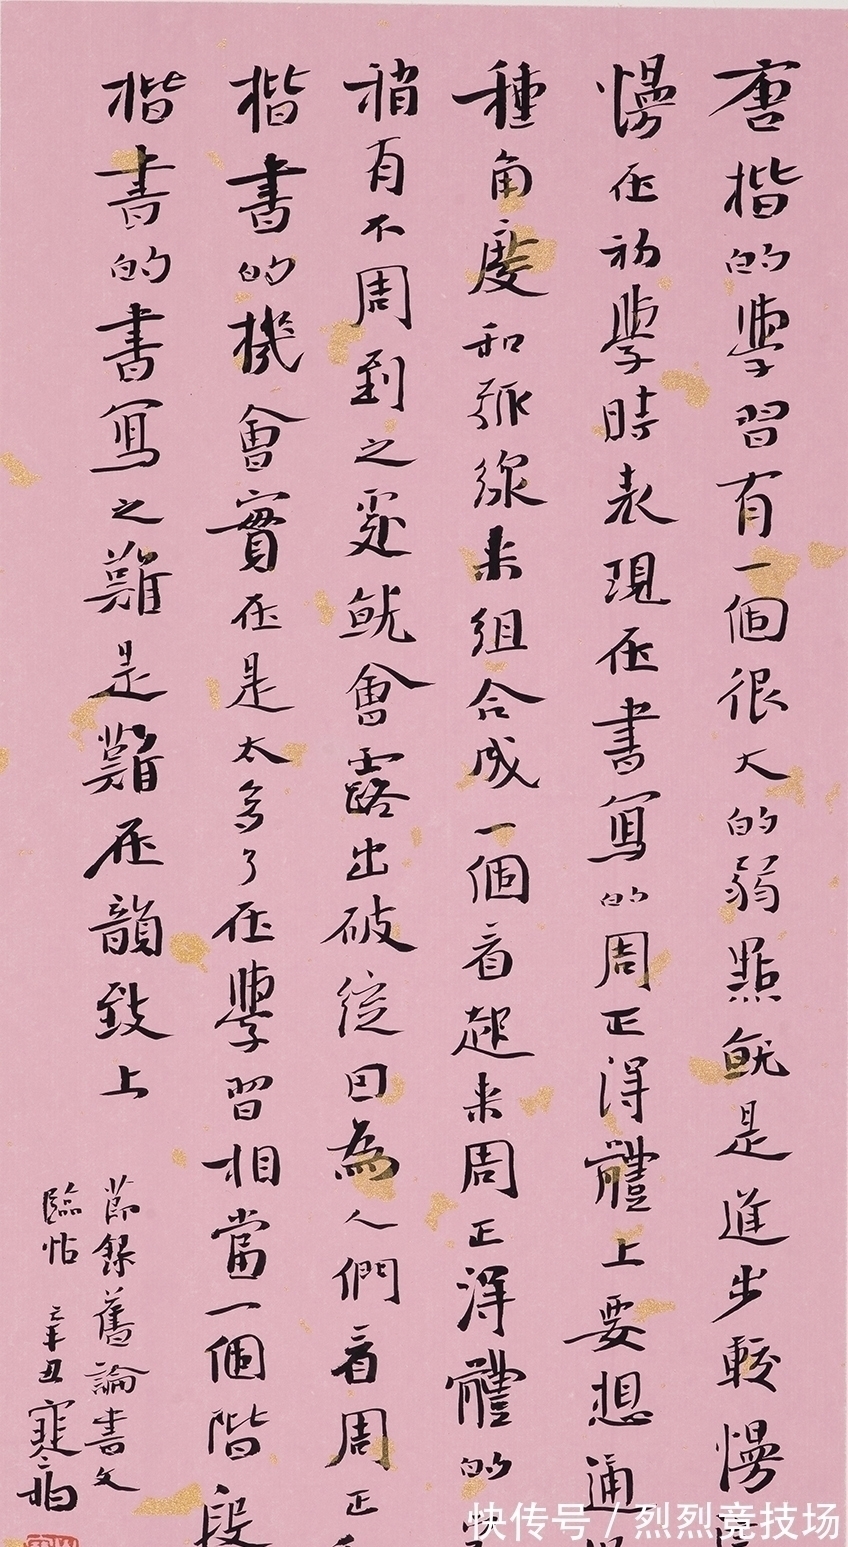 唐楷的學習有一個很大的弱點就是進步較慢
慢在初學時表現在書寫的周正得體上要想通
種角度和弧線來組合成一個看起来周正得體的
稍有不周到之處就會露出破綻因為人們看周正
楷書的機會實在是太多了在學習相當一個階段
楷書的書寫之難是難在韻致上
節錄舊論書文
臨帖 辛丑
快传号 / 烈烈竞技场